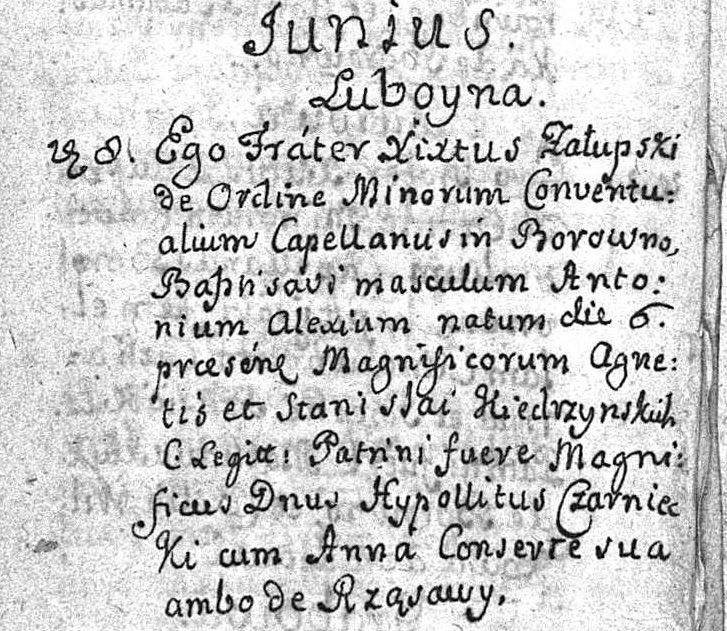 Junius.
Luboyna.
8. Ego Fráter Xixtus Załupski
de Ordine Minorum Conventu:
alium Capellanus in Borowno,
Baptisavi masculum Anto:
nium Alexium natum die 6.
Magnificorum Agne:
tis et Stanislai Hiedrzynskich
C Legitt: Patrini fuere Magni:
ficus Dnus Hypollitus Czarniec
Ki cum Anná Consorte sua
ambo de Rząsawy.